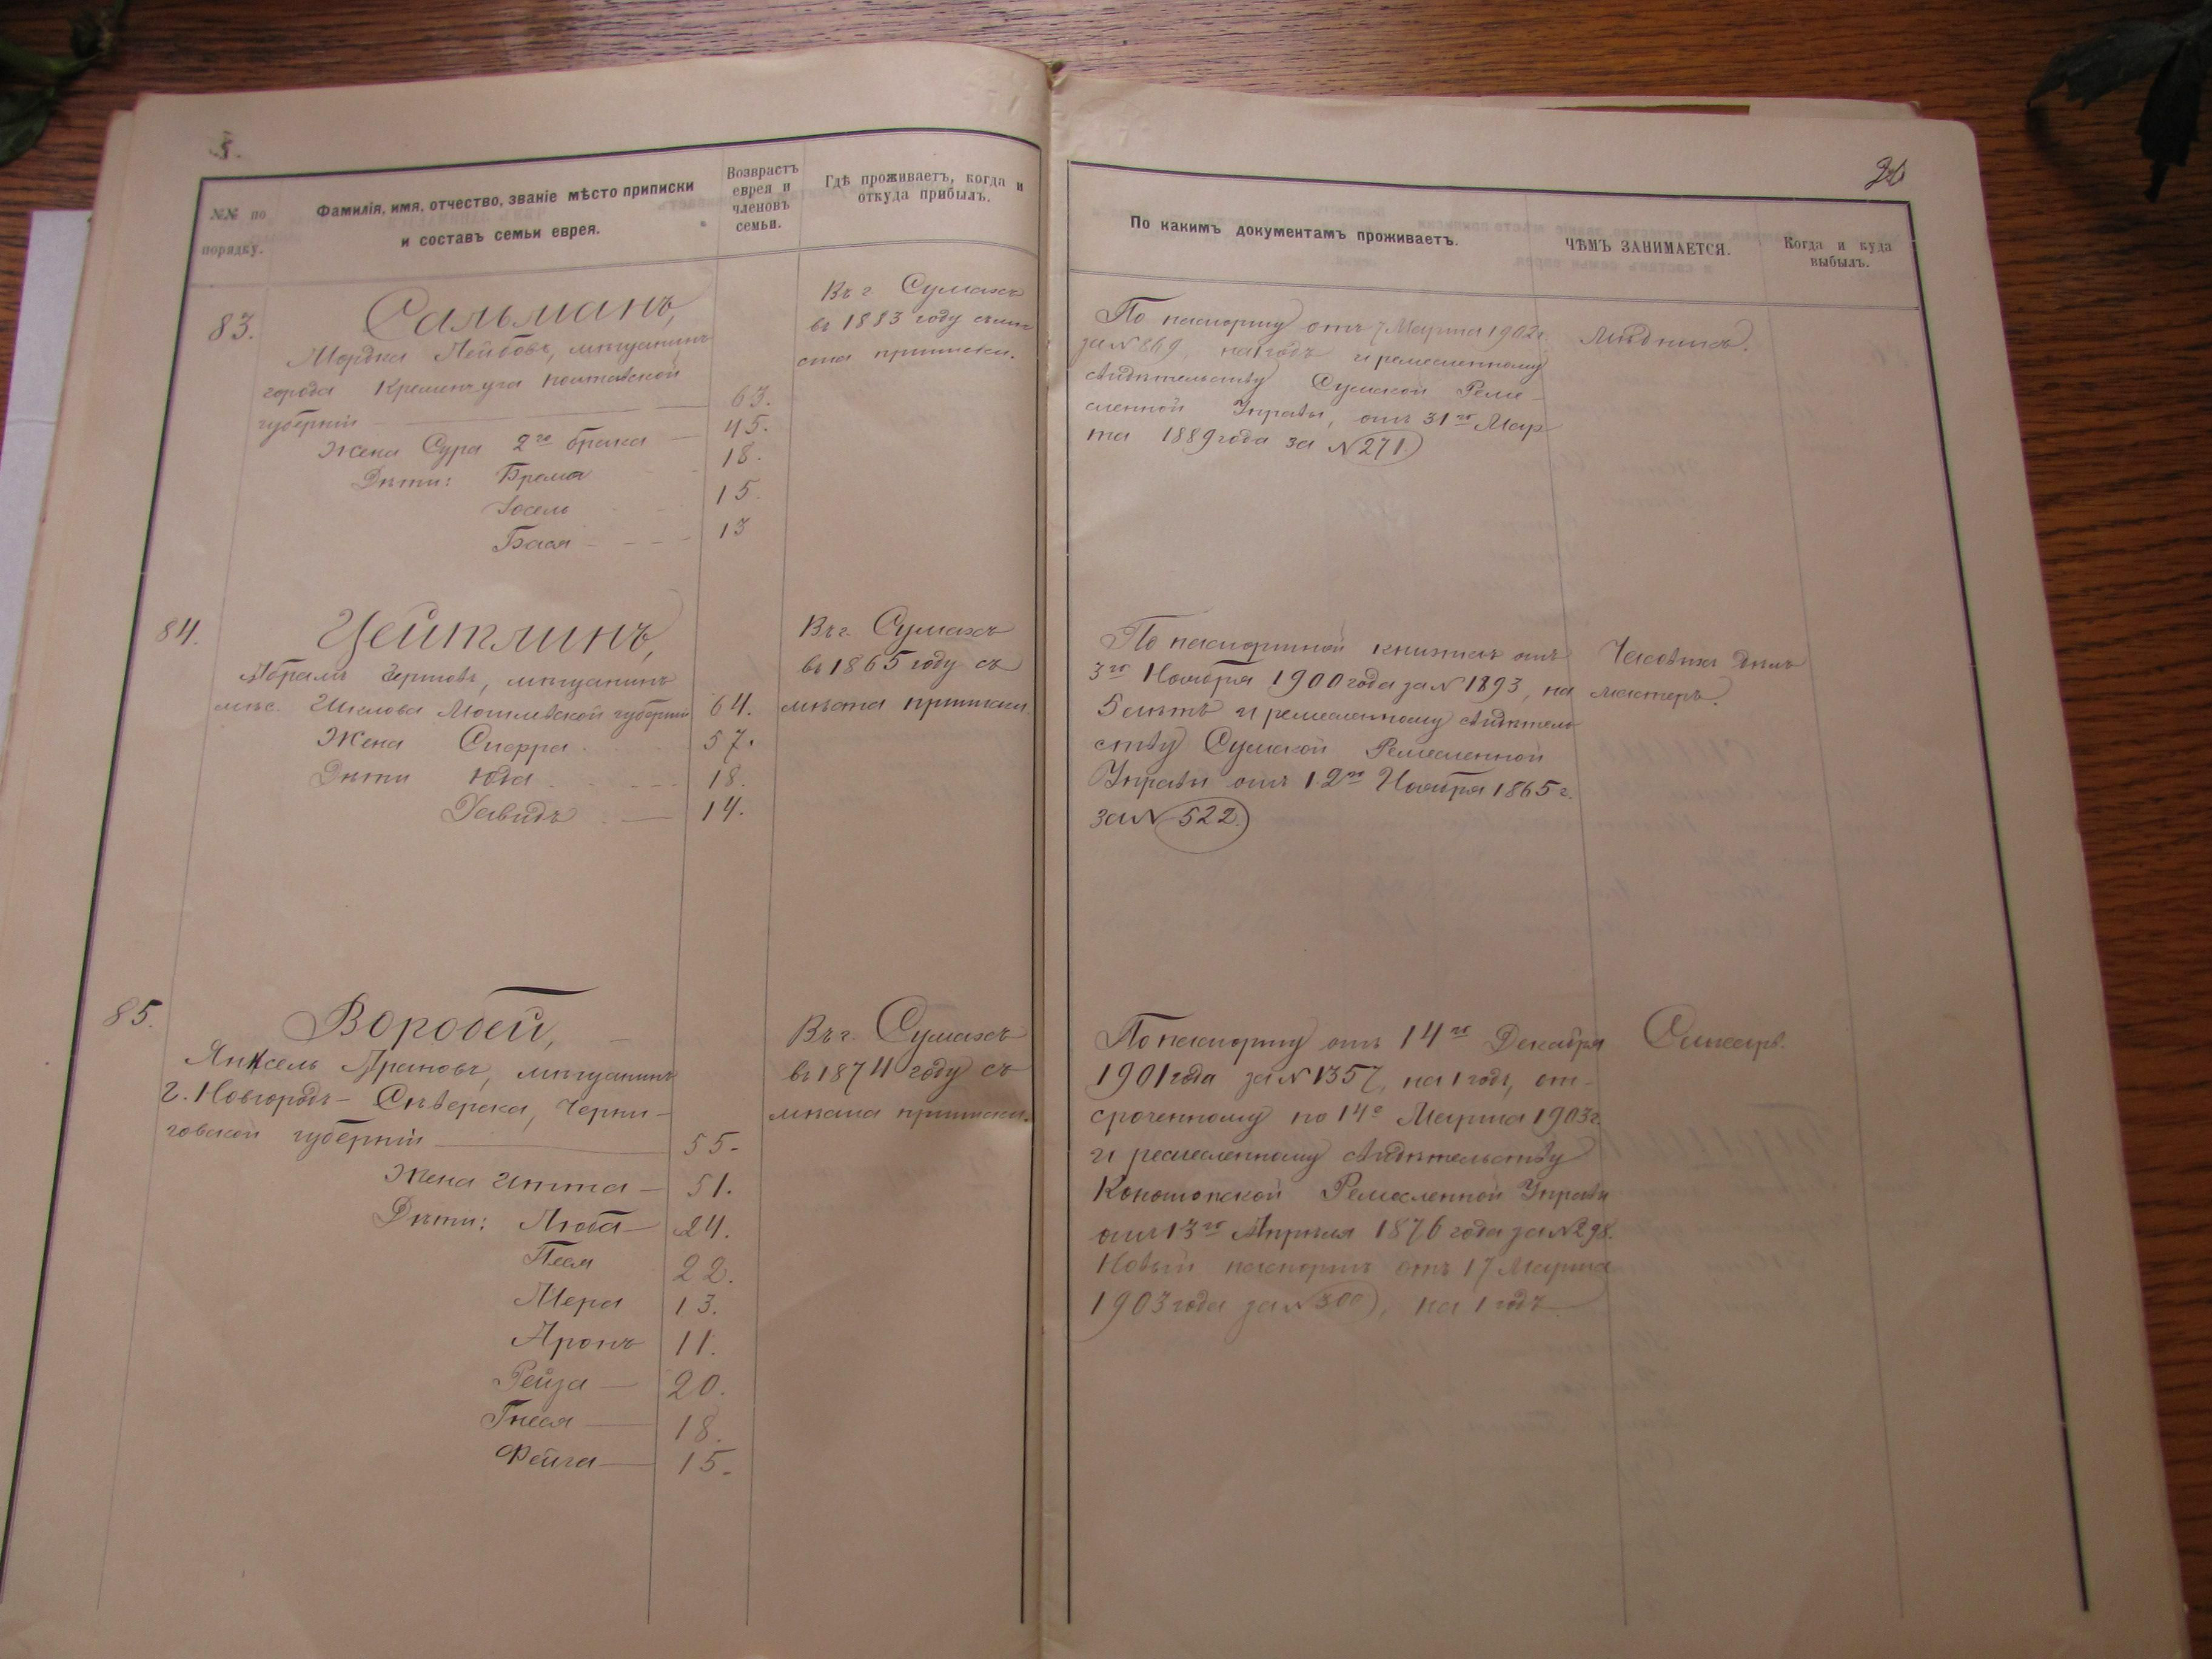 5.
26
№№ по
порядку.
Фамилія, имя, отчество, званіе мѣсто приписки
и составъ семьи еврея.
Возврастъ
еврея и
членовъ
семьи.
Гдѣ проживаетъ, когда и
откуда прибылъ.
По какимъ документамъ проживаетъ.
ЧѢМЪ ЗАНИМАЕТСЯ.
Когда и куда
выбылъ.
83.
Сальманъ,
Мордка Лейбовъ, мѣщанинъ
города Кременчуга Полтавской
губерніи 63.
Жена Сура 2го брака 45.
Дѣти: 18.
Іосель 15.
Бася 13
Въ г. Сумахъ
въ 1883 году съ мѣ
ста приписки.
По паспорту отъ 7 Марта 1902 г.
за № 869, на 1 годъ и ремесленному
свидѣтельству Сумской Реме-
сленной Управы, отъ 31го Мар-
та 1889 года за № 271.
Мѣдникъ.
84.
Цейтлинъ,
Абрамъ мѣщанинъ
мѣс. Могилевской губерніи 64.
Жена 57.
Дѣти Юда 18.
Давидъ 14.
Въ г. Сумахъ
въ 1865 году съ
мѣста приписки.
По паспортной книжкѣ отъ
3го Ноября 1900 года за № 1893, на
5 лѣтъ и ремесленному свидѣтель
ству Сумской Ремесленной
Управы отъ 12го Ноября 1865 г.
за № 522.
Часовыхъ дѣлъ
мастеръ.
85.
Воробей,
Янкель Ароновъ, мѣщанинъ
г. Новгородъ-Сѣверска, Черни-
говской губерніи 55.
Жена Итта 51.
Дѣти: Люба 24.
Песя 22.
Мера 13.
Аронъ 11.
Рейза 20.
Гнеся 18.
Фейга 15.
Въ г. Сумахъ
въ 1874 году съ
мѣста приписки.
По паспорту отъ 14го Декабря
1901 года за № 1357, на 1 годъ, от-
сроченному по 14е Марта 1903 г.
и ремесленному свидѣтельству
Конотопской Ремесленной Управы
отъ 13го Апрѣля 1876 года за № 298.
Новый паспортъ отъ 17 Марта
1903 года за № 300, на 1 годъ
Столяръ.